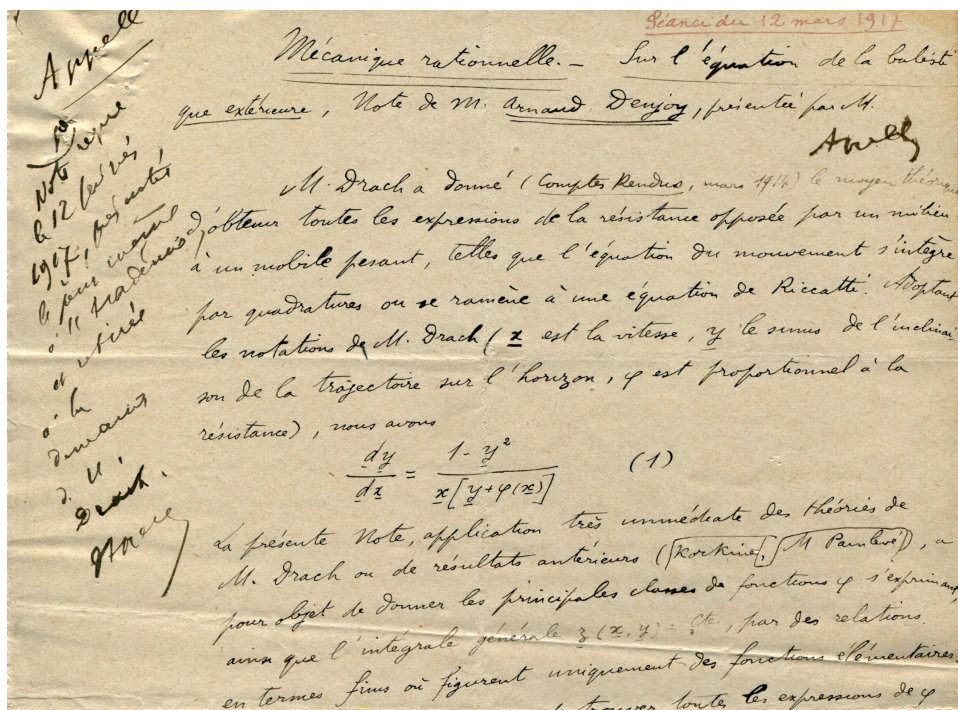 Séance du 12 mars 1917
Mécanique rationnelle. – Sur l'équation de la balisti
que extérieure, Note de M. Arnaud Denjoy, présentée par M.
Appell
M. Drach a donné (Comptes Rendus, mars 1914) le moyen théorique
d'obtenir toutes les expressions de la résistance opposée par un milieu
à un mobile pesant, telles que l'équation du mouvement s'intègre
par quadratures ou se ramène à une équation de Riccatti. Adoptant
les notations de M. Drach (x est la vitesse, y le sinus de l'inclinai-
son de la trajectoire sur l'horizon, φ est proportionnel à la
résistance), nous avons
dy/dx = 1-y²/x[y+φ(x)] (1)
La présente Note, application très immédiate des théories de
M. Drach ou de résultats antérieurs (Korkine, M Painlevé), a
pour objet de donner les principales classes de fonctions φ s'exprimant,
ainsi que l'intégrale générale z(x,y) = cte, par des relations
en termes finis où figurent uniquement des fonctions élémentaires.
trouver toutes les expressions de φ
Appell
Note reçue
le 12 février
1917, présentée
le jour même
à l'Académie
et retirée
à la
demande
de M.
Drach.
Appell